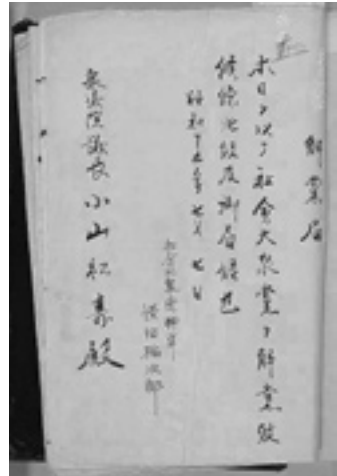 解党届
本日ヲ以テ社会大衆党ヲ解党致
候條此段及御届候也
昭和十五年七月七日
社会大衆党幹事
衆議院議長小山松寿殿